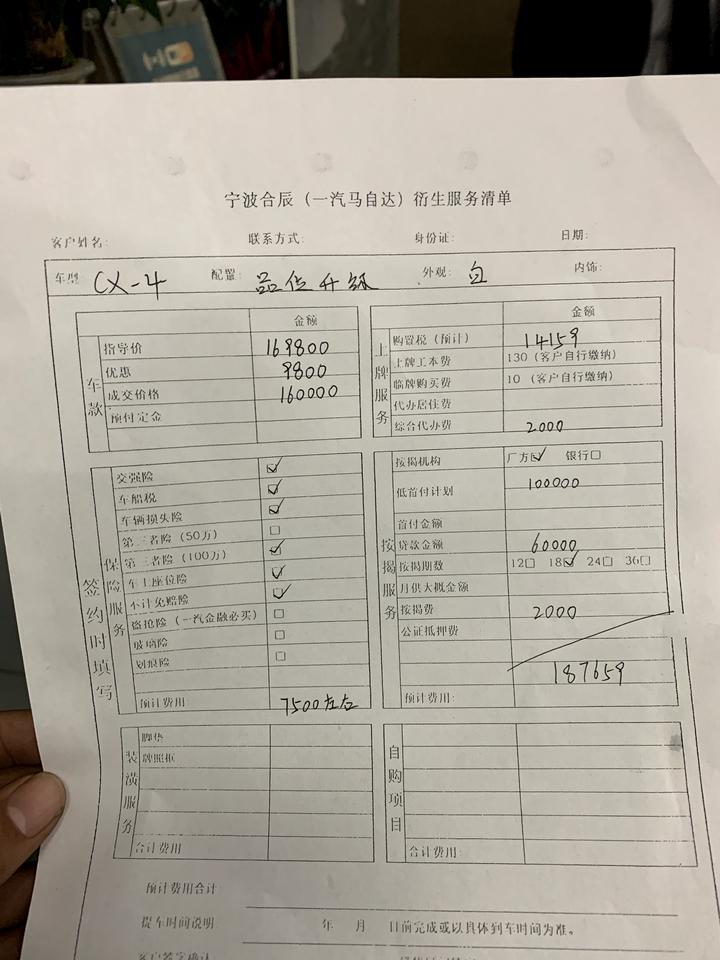 宁波合辰（一汽马自达）衍生服务清单
客户姓名: 联系方式: 身份证: 日期:
车型: CX-4 配置: 品位升级 外观: 白 内饰:
车款
金额
指导价 169800
优惠 9800
成交价格 160000
预付定金
上牌服务
金额
购置税（预计） 14159
上牌工本费 130（客户自行缴纳）
临牌购买费 10（客户自行缴纳）
代办居住费
综合代办费 2000
签约时填写
保险服务
交强险 ☑
车船税 ☑
车辆损失险 ☑
第三者险（50万） □
第三者险（100万） ☑
车上座位险 ☑
不计免赔险 ☑
盗抢险（一汽金融必买） □
玻璃险 □
划痕险 □
预计费用 7500左右
按揭服务
按揭机构 厂方☑ 银行□
低首付计划 100000
首付金额
贷款金额 60000
按揭期数 12□ 18☑ 24□ 36□
月供大概金额
按揭费 2000
公证抵押费
187659
预计费用:
装潢服务
脚垫
牌照框
合计费用
自购项目
合计费用:
预计费用合计:
提车时间说明: 年 月 日前完成或以具体到车时间为准。
客户签字确认: